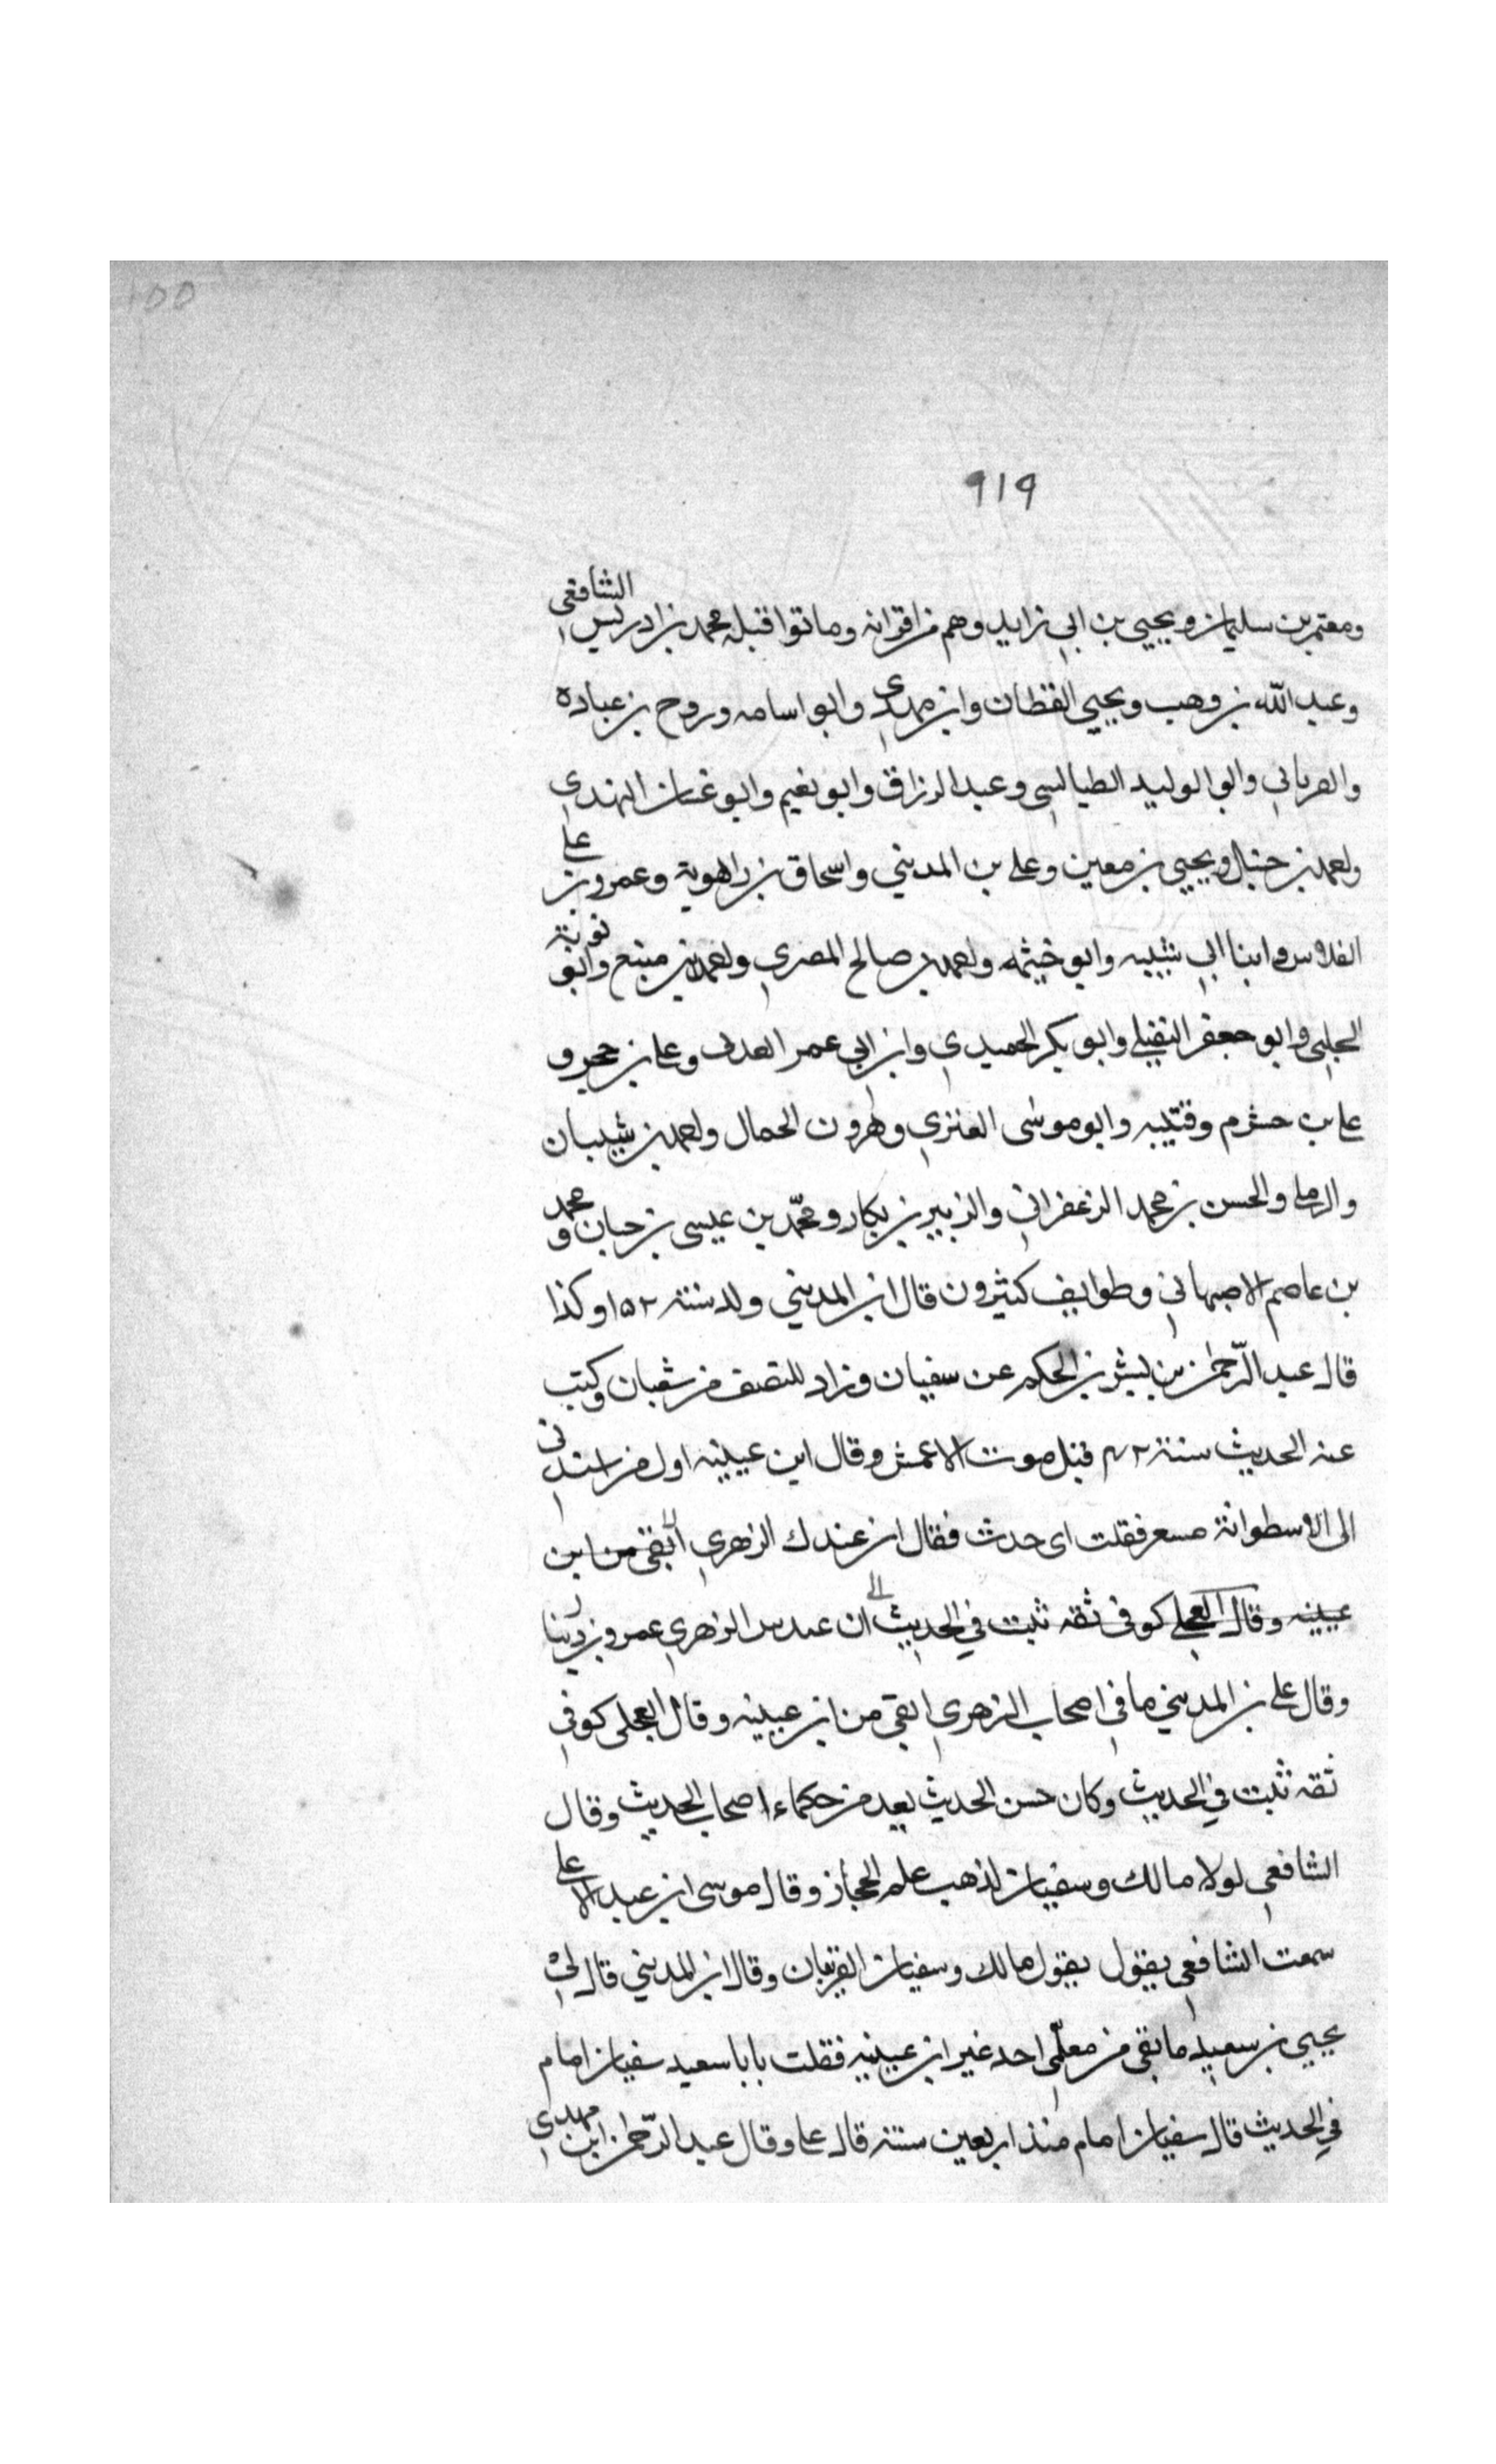 ١٥٥
٩١٩
ومعتمر بن سليمان ويحيى بن ابي زايد وهم من اقرانه وماتوا قبله محمد بن ادريس الشافعي
وعبد الله بن وهب ويحيى القطان وابن مهدي وابو اسامه وروح بن عباده
والفريابي وابو الوليد الطيالسي وعبد الرزاق وابو نعيم وابو غسان النهدي
واحمد بن حنبل ويحيى بن معين وعلي بن المديني واسحاق بن راهوية وعمرو بن علي
الفلاس وابنا ابي شيبه وابو خيثمه واحمد بن صالح المصري واحمد بن منيع وابو توبة
الحلبي وابو جعفر النفيلي وابو بكر الحميدي وابن ابي عمر العدني وعلي بن حجر و
علي بن خشرم وقتيبه وابو موسى العنزي وهرون الحمال واحمد بن شيبان
والرملي والحسن بن محمد الزعفراني والزبير بن بكار ومحمّد بن عيسى بن حبان ومحمد
بن عاصم الاصبهاني وطوايف كثيرون قال ابن المديني ولد سنة ١٥٢ وكذا
قال عبد الرّحمن بن بشر بن الحكم عن سفيان وزاد للنصف من شعبان وكتب
عنه الحديث سنة ٤٢ قبل موت الاعمش وقال ابن عيينه اول من اسندني
الى الاسطوانة مسعر فقلت اى حدث فقال ان عندك الزهري اتقى من ابن
عيينه وقال العجلي كوفى ثقه ثبت في الحديث الى ان عندك الزهري عمرو بن دينار
وقال علي بن المديني ما في اصحاب الزهري اتقى من ابن عيينه وقال العجلى كوفي
ثقه ثبت في الحديث وكان حسن الحديث يعد من حكماء اصحاب الحديث وقال
الشافعي لولا مالك وسفيان لذهب علم الحجاز وقال موسى ابن عبد الاعلى
سمعت الشافعي يقول يقول مالك وسفيان القرينان وقال ابن المديني قال لي
يحيى بن سعيد ما بقي من معلّمي احد غير ابن عيينه فقلت يابا سعيد سفيان امام
في الحديث قال سفيان امام منذ اربعين سنة قال علي وقال عبد الرّحمن ابن مهدي